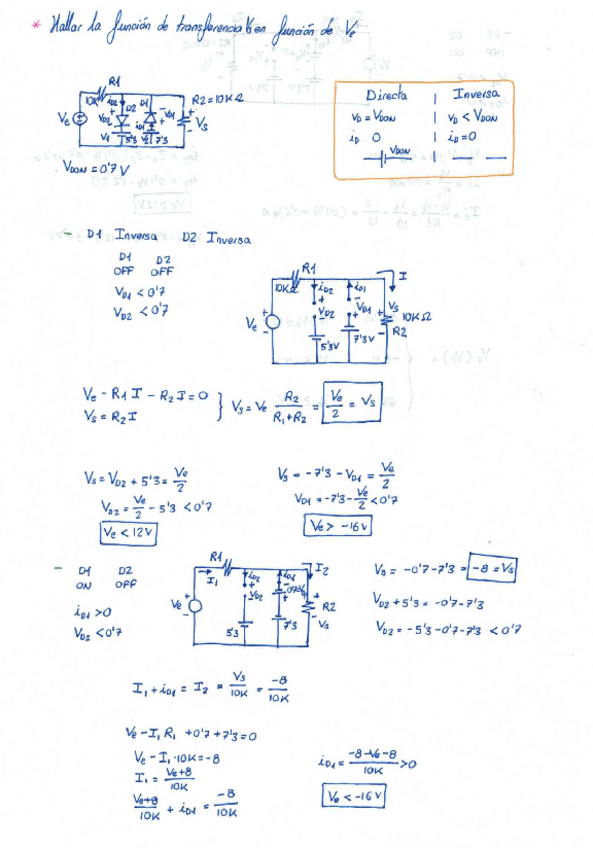 * Hallar la función de transferencia Vs en función de Ve
R1
10K
iD2
D2
D1
R2=10KΩ
Ve
VD2
iD1
VD1
Vs
V1
5'3
V2
7'3
VDON = 0'7 V
Directa | Inversa
VD = VDON | VD < VDON
iD 0 | iD = 0
VDON
- D1 Inversa D2 Inversa
D1 D2
OFF OFF
VD1 < 0'7
VD2 < 0'7
R1
10KΩ
iD2
iD1
I
Ve
VD2
VD1
Vs
10KΩ
R2
5'3V
7'3V
Ve - R1 I - R2 I = 0
Vs = R2 I
} Vs = Ve R2/(R1+R2) = Ve/2 = Vs
Vs = VD2 + 5'3 = Ve/2
VD2 = Ve/2 - 5'3 < 0'7
Ve < 12V
Vs = -7'3 - VD1 = Ve/2
VD1 = -7'3 - Ve/2 < 0'7
Ve > -16V
- D1 D2
ON OFF
iD1 > 0
VD2 < 0'7
R1
I1
iD2
iD1
I2
Ve
VD2
0'7
R2
Vs
5'3
7'3
Vs = -0'7 - 7'3 = -8 = Vs
VD2 + 5'3 = -0'7 - 7'3
VD2 = -5'3 - 0'7 - 7'3 < 0'7
I1 + iD1 = I2 = Vs/10K = -8/10K
Ve - I1 R1 + 0'7 + 7'3 = 0
Ve - I1 · 10K = -8
I1 = (Ve+8)/10K
(Ve+8)/10K + iD1 = -8/10K
iD1 = (-8-Ve-8)/10K > 0
Ve < -16V